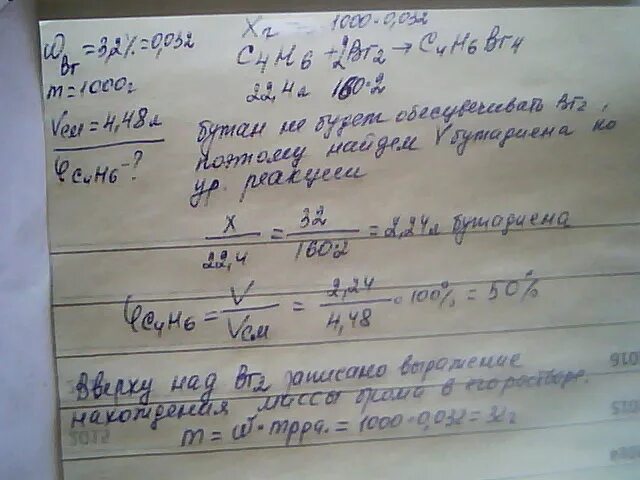 Xг = 1000·0,032
ω Br = 3,2% = 0,032
C4H6 + 2Br2 → C4H6Br4
m = 1000г
22,4л 160·2
Vсм = 4,48л
φC4H6 - ?
бутан не будет обесцвечивать Br2,
поэтому найдем V бутадиена по
ур. реакции
x/22,4 = 32/160·2 = 2,24л бутадиена
φC4H6 = V/Vсм = 2,24/4,48 · 100% = 50%
Вверху над Br2 записано выражение
нахождения массы брома в его растворе.
m = ω · mрра. = 1000·0,032 = 32г